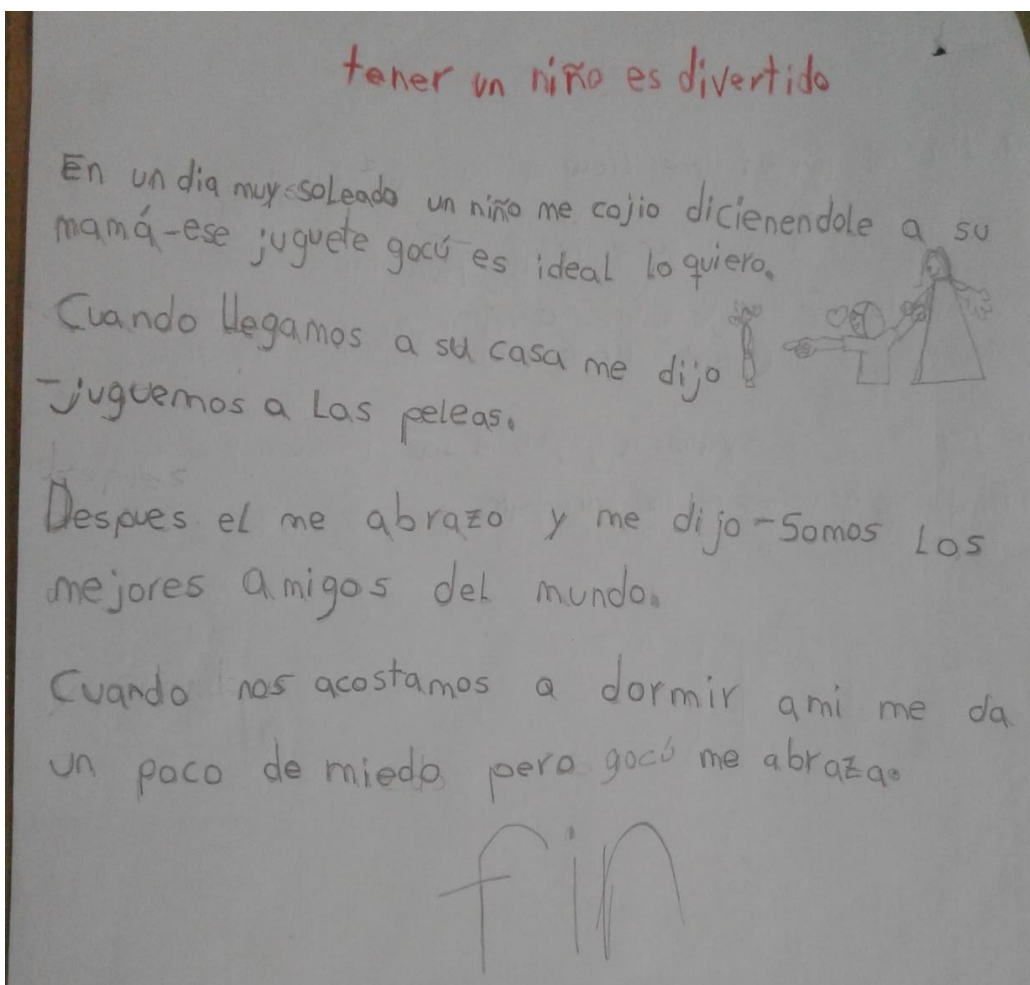 tener un niño es divertido
En un dia muy soleado un niño me cojio dicienendole a su
mamá-ese juguete gocú es ideal lo quiero.
Cuando llegamos a su casa me dijo
-juguemos a Las peleas.
Despues el me abrazo y me dijo-Somos Los
mejores amigos del mundo.
Cuando nos acostamos a dormir ami me da
un poco de miedo pero gocú me abraza.
fin